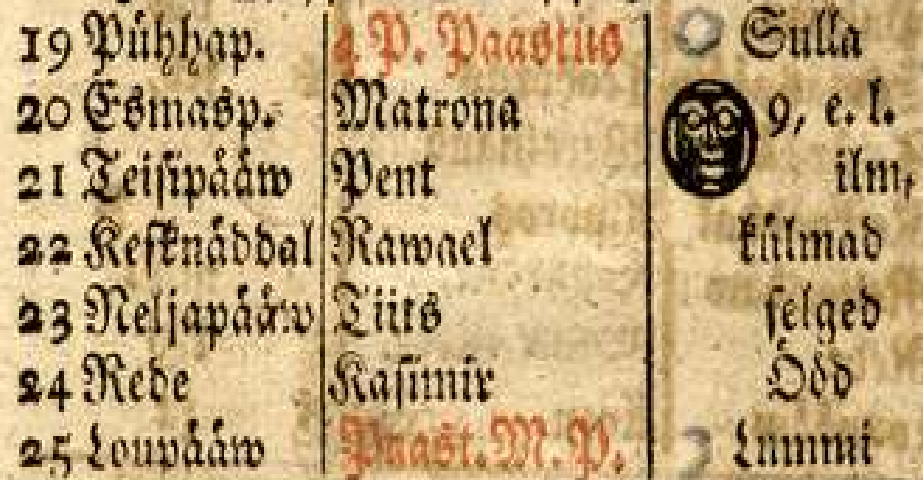 19 Pühhap. 4 P. Paastus Sulla
20 Esmasp. Matrona 9, e. l.
21 Teisipääw Pent ilm,
22 Kesknäddal Rawael külmad
23 Neljapääw Tiits selged
24 Rede Kasimir Ööd
25 Loupääw Paast. M. P. Lummi